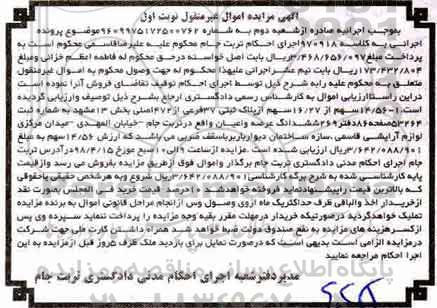 آگهی مزایده اموال غیرمنقول نوبت اول
بموجب اجرائیه صادره ازشعبه دوم به شماره ۹۶۰۹۹۷۵۱۷۲۵۰۰۷۶۲ موضوع پرونده
اجرائی به کلاسه ۹۷۰۹۱۸ اجرای احکام تربت جام محکوم علیه علیرضاقاسمی محکوم است به
پرداخت مبلغ ۳/۴۶۸/۶۵۶/۰۹۷ریال بابت اصل خواسته درحق محکوم له فاطمه اعظم خزائی ومبلغ
۱۷۳/۴۳۲/۸۰۴ریال بابت نیم عشراجرائی علیهذا محکوم له جهت وصول محکوم به اموال غیرمنقول
متعلق به محکوم علیه رابه شرح ذیل توسط اجرای احکام توقیف تقاضای فروش آنرا نموده است
دراین راستاارزیابی اموال به کارشناس رسمی دادگستری ارجاع بشرح ذیل توصیف وارزیابی گردیده
است:۱-۱۴/۵۶سهم از ۱۶/۲۷سهم ازپلاک ثبتی ۳۷فرعی از۴۷۲اصلی بخش ۱۳مشهد به شماره ثبت
۵۳۲۶۴صفحه۸۶دفتر۲۶۹ششدانگ عرصه واعیان واقع درتربت جام -خیابان المهدی -میدان مرکزی
لوازم آرایشی قاسمی ،سازه ساختمان دیوارباربرباسقف ضربی می باشد که ارزش ۱۴/۵۶سهم به مبلغ
۳/۶۴۲/۰۸۸/۹۰۱ریال ارزیابی شده است .مزایده ازساعت ۹الی۱۰صبح مورخ ۹۸/۴/۱۵درآدرس تربت
جام اجرای احکام مدنی دادگستری تربت جام برگذار واموال فوق ازطریق مزایده بفروش می رسد وازقیمت
پایه کارشناسی شده به شرح برگه کارشناسی۳/۶۴۲/۰۸۸/۹۰۱ریال شروع وبه هرشخص حقیقی یاحقوقی
که بالاترین قیمت راپیشنهادنماید فروخته خواهدشد۱۰درصد قیمت خرید فی المجلس بصورت نقد
ازخریدار اخذ والباقی ظرف حداکثریک ماه ازوی وصول وپس ازانجام مراحل قانونی اموال به برنده مزایده
تملیک خواهدگردید درصورتیکه خریدار درمهلت مقرر بقیه وجه مزایده را پرداخت ننماید سپرده وی پس
ازکسرهزینه های مزایده به نفع صندوق دولت ضبط خواهد شد همراه داشتن کارت ملی جهت شرکت
درمزایده الزامی است بدیهی است که درصورت تمایل برای بازدید ملک ظرف ۵روز قبل ازمزایده به این
اجرا احکام مراجعه نمایید
مدیردفترشعبه اجرای احکام مدنی دادگستری تربت جام